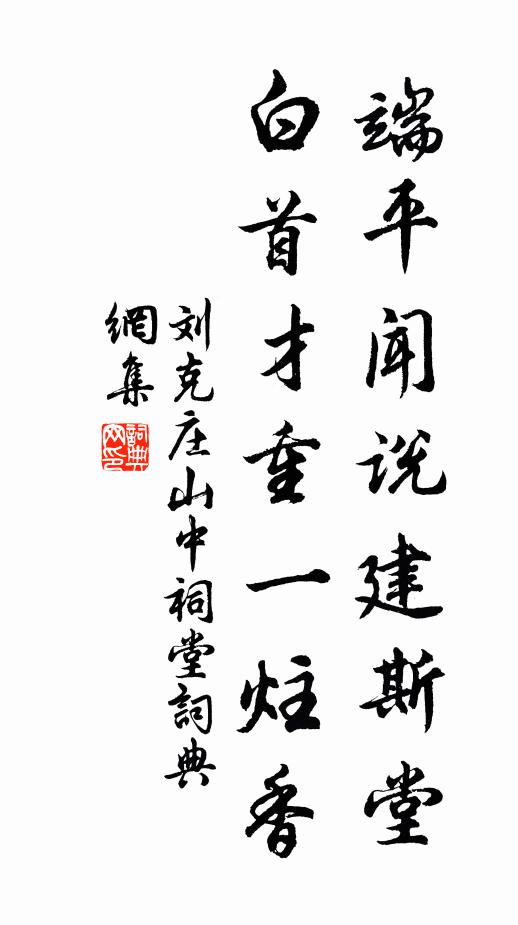 端平闻说建斯堂
白首才重一炷香
刘克庄山中祠堂詞典
網集
詞典网印